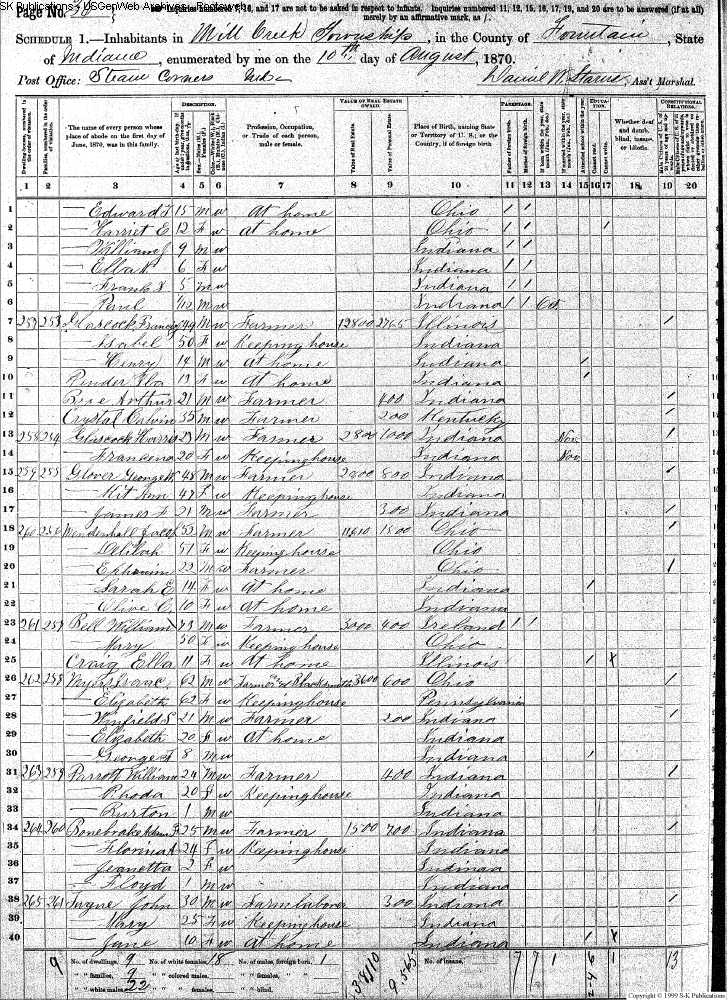 SK Publications - USGenWeb Archives - Rootsweb
Page No. 36 Inquiries numbered 7, 16, and 17 are not to be asked in respect to infants. Inquiries numbered 11, 12, 15, 16, 17, 19, and 20 are to be answered (if at all) merely by an affirmative mark, as /.
SCHEDULE 1.—Inhabitants in Mill Creek Township, in the County of Fountain, State
of Indiana, enumerated by me on the 10th day of August, 1870.
Post Office: Steam Corners Daniel W. Ass't Marshal.
DESCRIPTION. VALUE OF REAL ESTATE OWNED. PARENTAGE. EDUCATION. CONSTITUTIONAL RELATIONS.
The name of every person whose place of abode on the first day of June, 1870, was in this family.
Profession, Occupation, or Trade of each person, male or female.
Value of Real Estate Value of Personal Estate
Place of Birth, naming State or Territory of U. S.; or the Country, if of foreign birth
Whether deaf and dumb, blind, insane, or idiotic.
1 2 3 4 5 6 7 8 9 10 11 12 13 14 15 16 17 18 19 20
1 — Edward 15 m w At home Ohio / /
2 — Harriet E 12 F w at home Ohio / / /
3 — William J 9 m w Indiana / /
4 — Ella 6 F w Indiana / /
5 — Frank 5 m w Indiana / /
6 — Paul /12 m w Indiana / / Oct
7 257 253 Glascock Francis 49 M w Farmer 12800 2765 Illinois /
8 — Isabel 50 F w Keeping house Indiana
9 — Henry 14 m w At home Indiana /
10 Render 13 F w At home Indiana /
11 Arthur 21 M w Farmer 400 Indiana /
12 Crystal Calvin 35 m w Farmer 200 Kentucky /
13 258 254 Glascock Harris 23 M w Farmer 2800 1000 Indiana Nov /
14 — 20 F w Keeping house Indiana Nov
15 259 255 Glover George W 48 M w Farmer 2800 800 Indiana /
16 — Kit Ann 47 F w Keeping house Indiana
17 — James F 21 M w Farmer 300 Indiana /
18 260 256 Mendenhall Jacob 52 M w Farmer 11610 1500 Ohio /
19 — Delilah 51 F w Keeping house Ohio
20 — Ephraim 22 M w Farmer Ohio /
21 — Sarah E 14 F w At home Indiana /
22 — Olive C 10 F w at home Indiana
23 261 257 Bell William 73 M w Farmer 3000 400 Ireland / / /
24 — Mary 50 F w Keeping house Ohio
25 Craig Ella 11 F w At home Illinois / X
26 262 258 Myers Isaac 62 m w Farmer and Blacksmith 3600 600 Ohio /
27 — Elizabeth 62 F w Keeping house Pennsylvania
28 — Winfield S 21 M w Farmer 200 Indiana /
29 — Elizabeth 20 F w At home Indiana
30 — George F 8 m w Indiana /
31 263 259 Parrott William 24 M w Farmer 400 Indiana /
32 — Rhoda 20 F w Keeping house Indiana
33 — Burton 1 m w Indiana
34 264 260 Bonebrake 25 M w Farmer 1500 700 Indiana /
35 — 24 F w Keeping house Indiana
36 — Jeanetta 2 F w Indiana
37 — Floyd 1 m w Indiana
38 265 261 John 30 M w Farm laborer 300 Indiana /
39 — Mary 25 F w Keeping house Indiana
40 — Jane 10 F w At home Indiana / X
9 No. of dwellings, 9 No. of white females, 18 No. of males, foreign born, 1 38110 9.565 No. of insane, 7 7 1 6 1 13
" " families, 9 " " colored males, " " females,
" " white males, 22 " " females, " " blind,
Copyright © 1999 S-K Publications